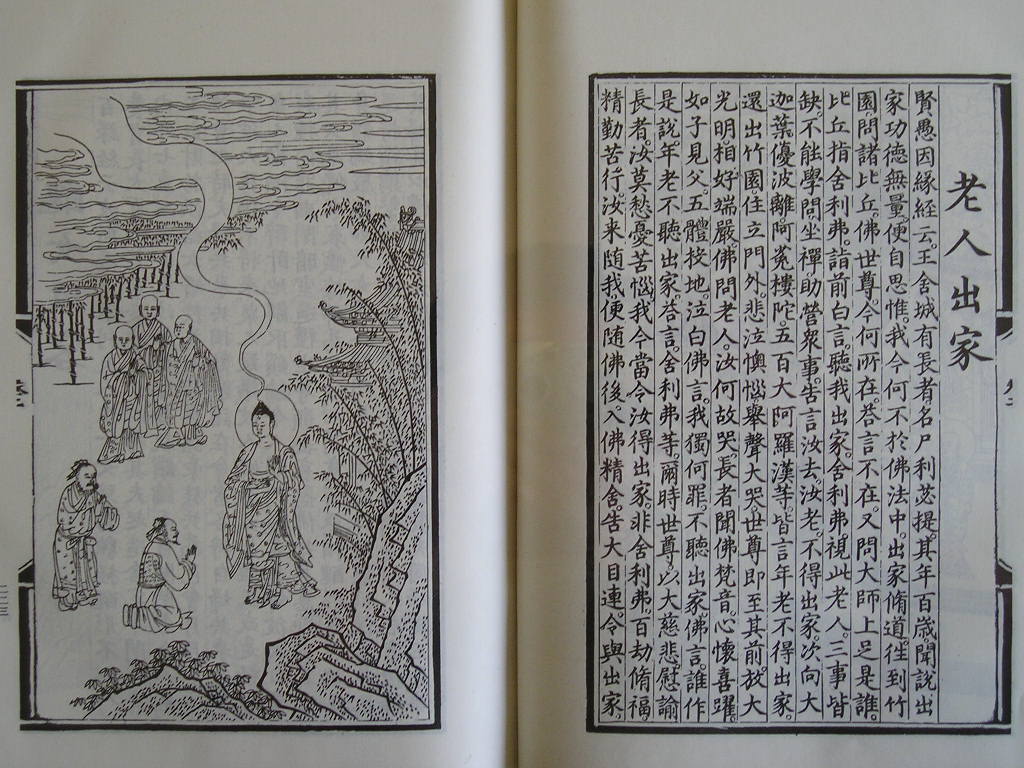 老人出家
賢愚因緣経云。王舍城有長者名尸利苾提。其年百歳。聞說出
家功德無量。便自思惟。我今何不於佛法中。出家脩道。往到竹
園問諸比丘。佛世尊今何所在。荅言不在。又問大師上足是誰。
比丘指舍利弗。詣前白言。聽我出家。舍利弗視此老人。三事皆
缺。不能學問。坐禪。助营衆事。告言汝去。汝老。不得出家。次向大
迦葉。優波離。阿㝹樓陀。五百大阿羅漢等。皆言年老不得出家。
還出竹園。住立門外。悲泣懊惱。舉聲大哭。世尊即至其前。放大
光明。相好端嚴。佛問老人。汝何故哭。長者聞佛梵音。心懷喜躍。
如子見父。五體投地。泣白佛言。我獨何罪。不聽出家。佛言。誰作
是說。年老不聽出家。荅言舍利弗等。爾時世尊。以大慈悲慰諭
長者。汝莫愁憂苦惱。我今當令汝得出家。非舍利弗。百劫脩福。
精勤苦行。汝来随我。便随佛後。入佛精舍。告大目連。令與出家。